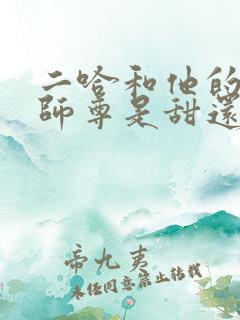 二哈和他的
師尊是甜還
帝九夷
未经同意禁止转载